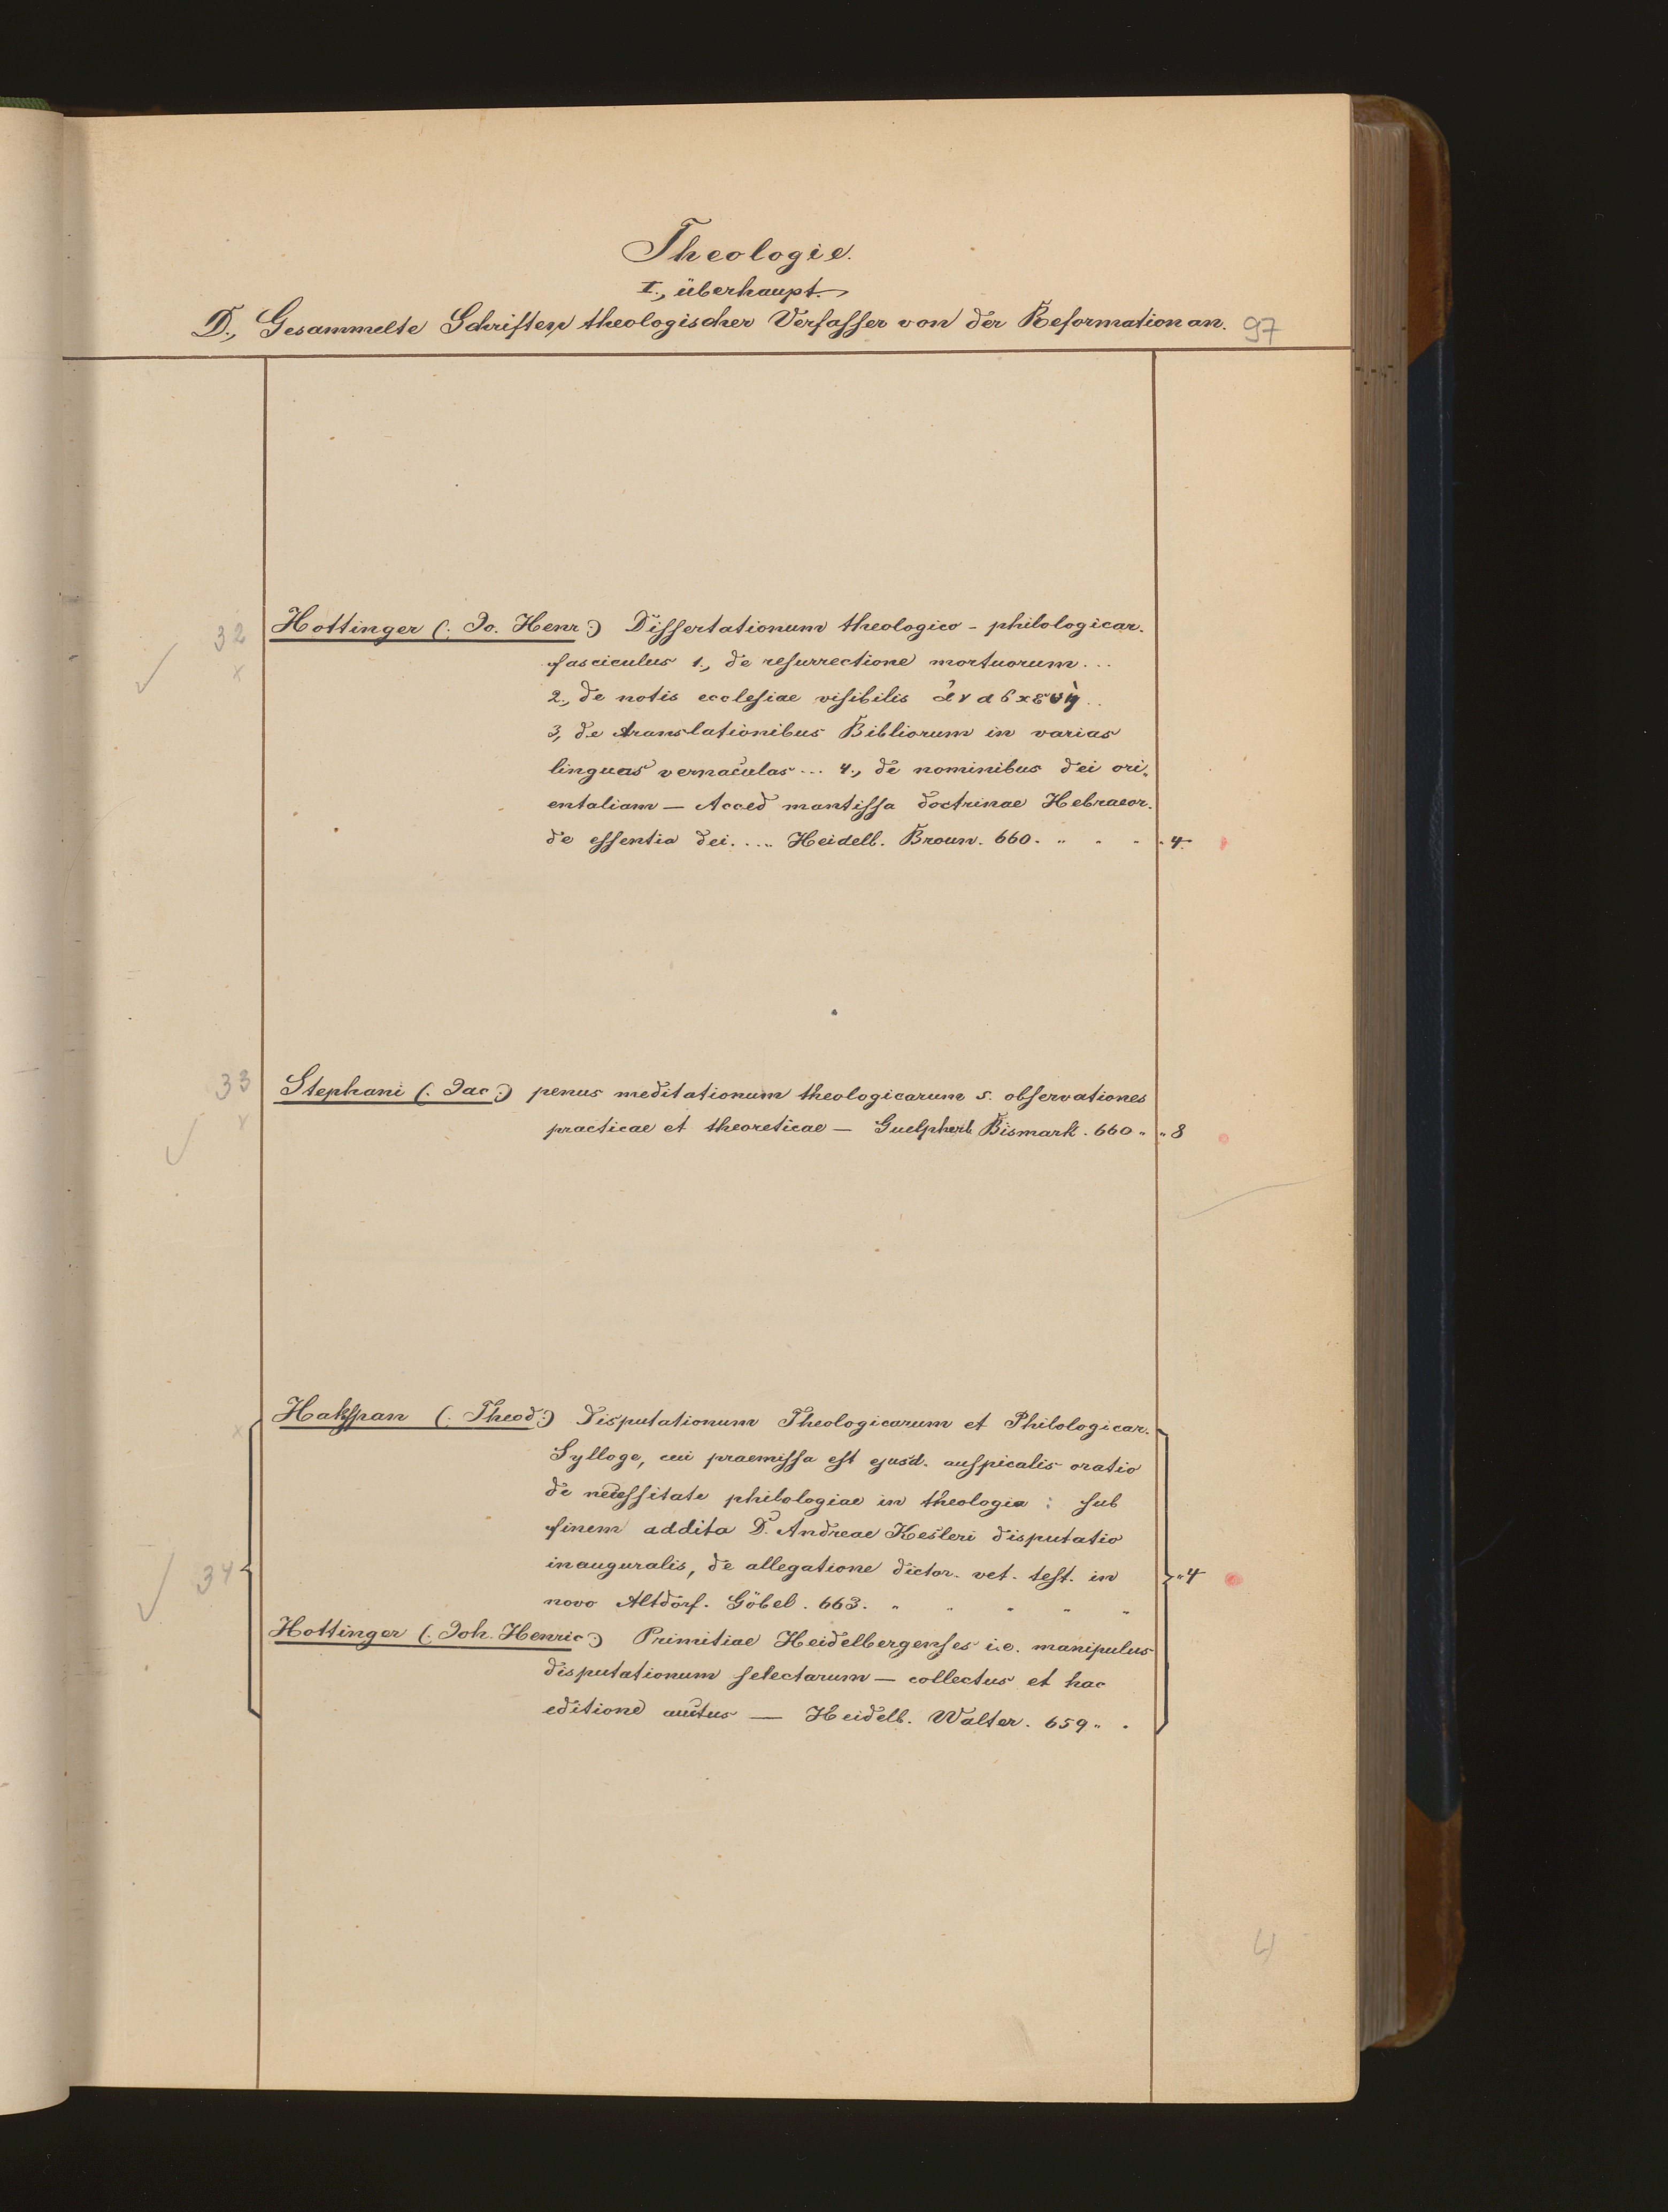 Theologie.
I., überhaupt.
D., Gesammelte Schriften theologischer Verfasser von der Reformation an. 97
32 Hottinger (: Jo. Henr :) Dissertationum theologico - philologicar.
x fasciculus 1., de resurrectione mortuorum ...
2., de notis ecclesiae visibilis
3, de translationibus Bibliorum in varias
linguas vernaculas ... 4., de nominibus dei ori„
entaliam — Acced mantissa doctrinae Hebraeor.
de essentia dei. ... Heidelb. Broun. 660. " " " " 4.
33 Stephani (: Jac :) penus meditationum theologicarum s. observationes
x practicae et theoreticae — Guelpherb Bismark. 660 " " 8
x Hakspan (: Theod :) Disputationum Theologicarum et Philologicar.
Sylloge, cui praemissa est ejusd. auspicalis oratio
de necessitate philologiae in theologia : sub
finem addita D. Andreae Kesleri disputatio
34 inauguralis, de allegatione dictor. vet. test. in " 4
novo Altdörf. Göbel. 663. " " " " "
Hottinger (: Joh. Henric :) Primitiae Heidelbergenses i.e. manipulus
disputationum selectarum — collectus et hac
editione auctus — Heidelb. Walter. 659 " .
4